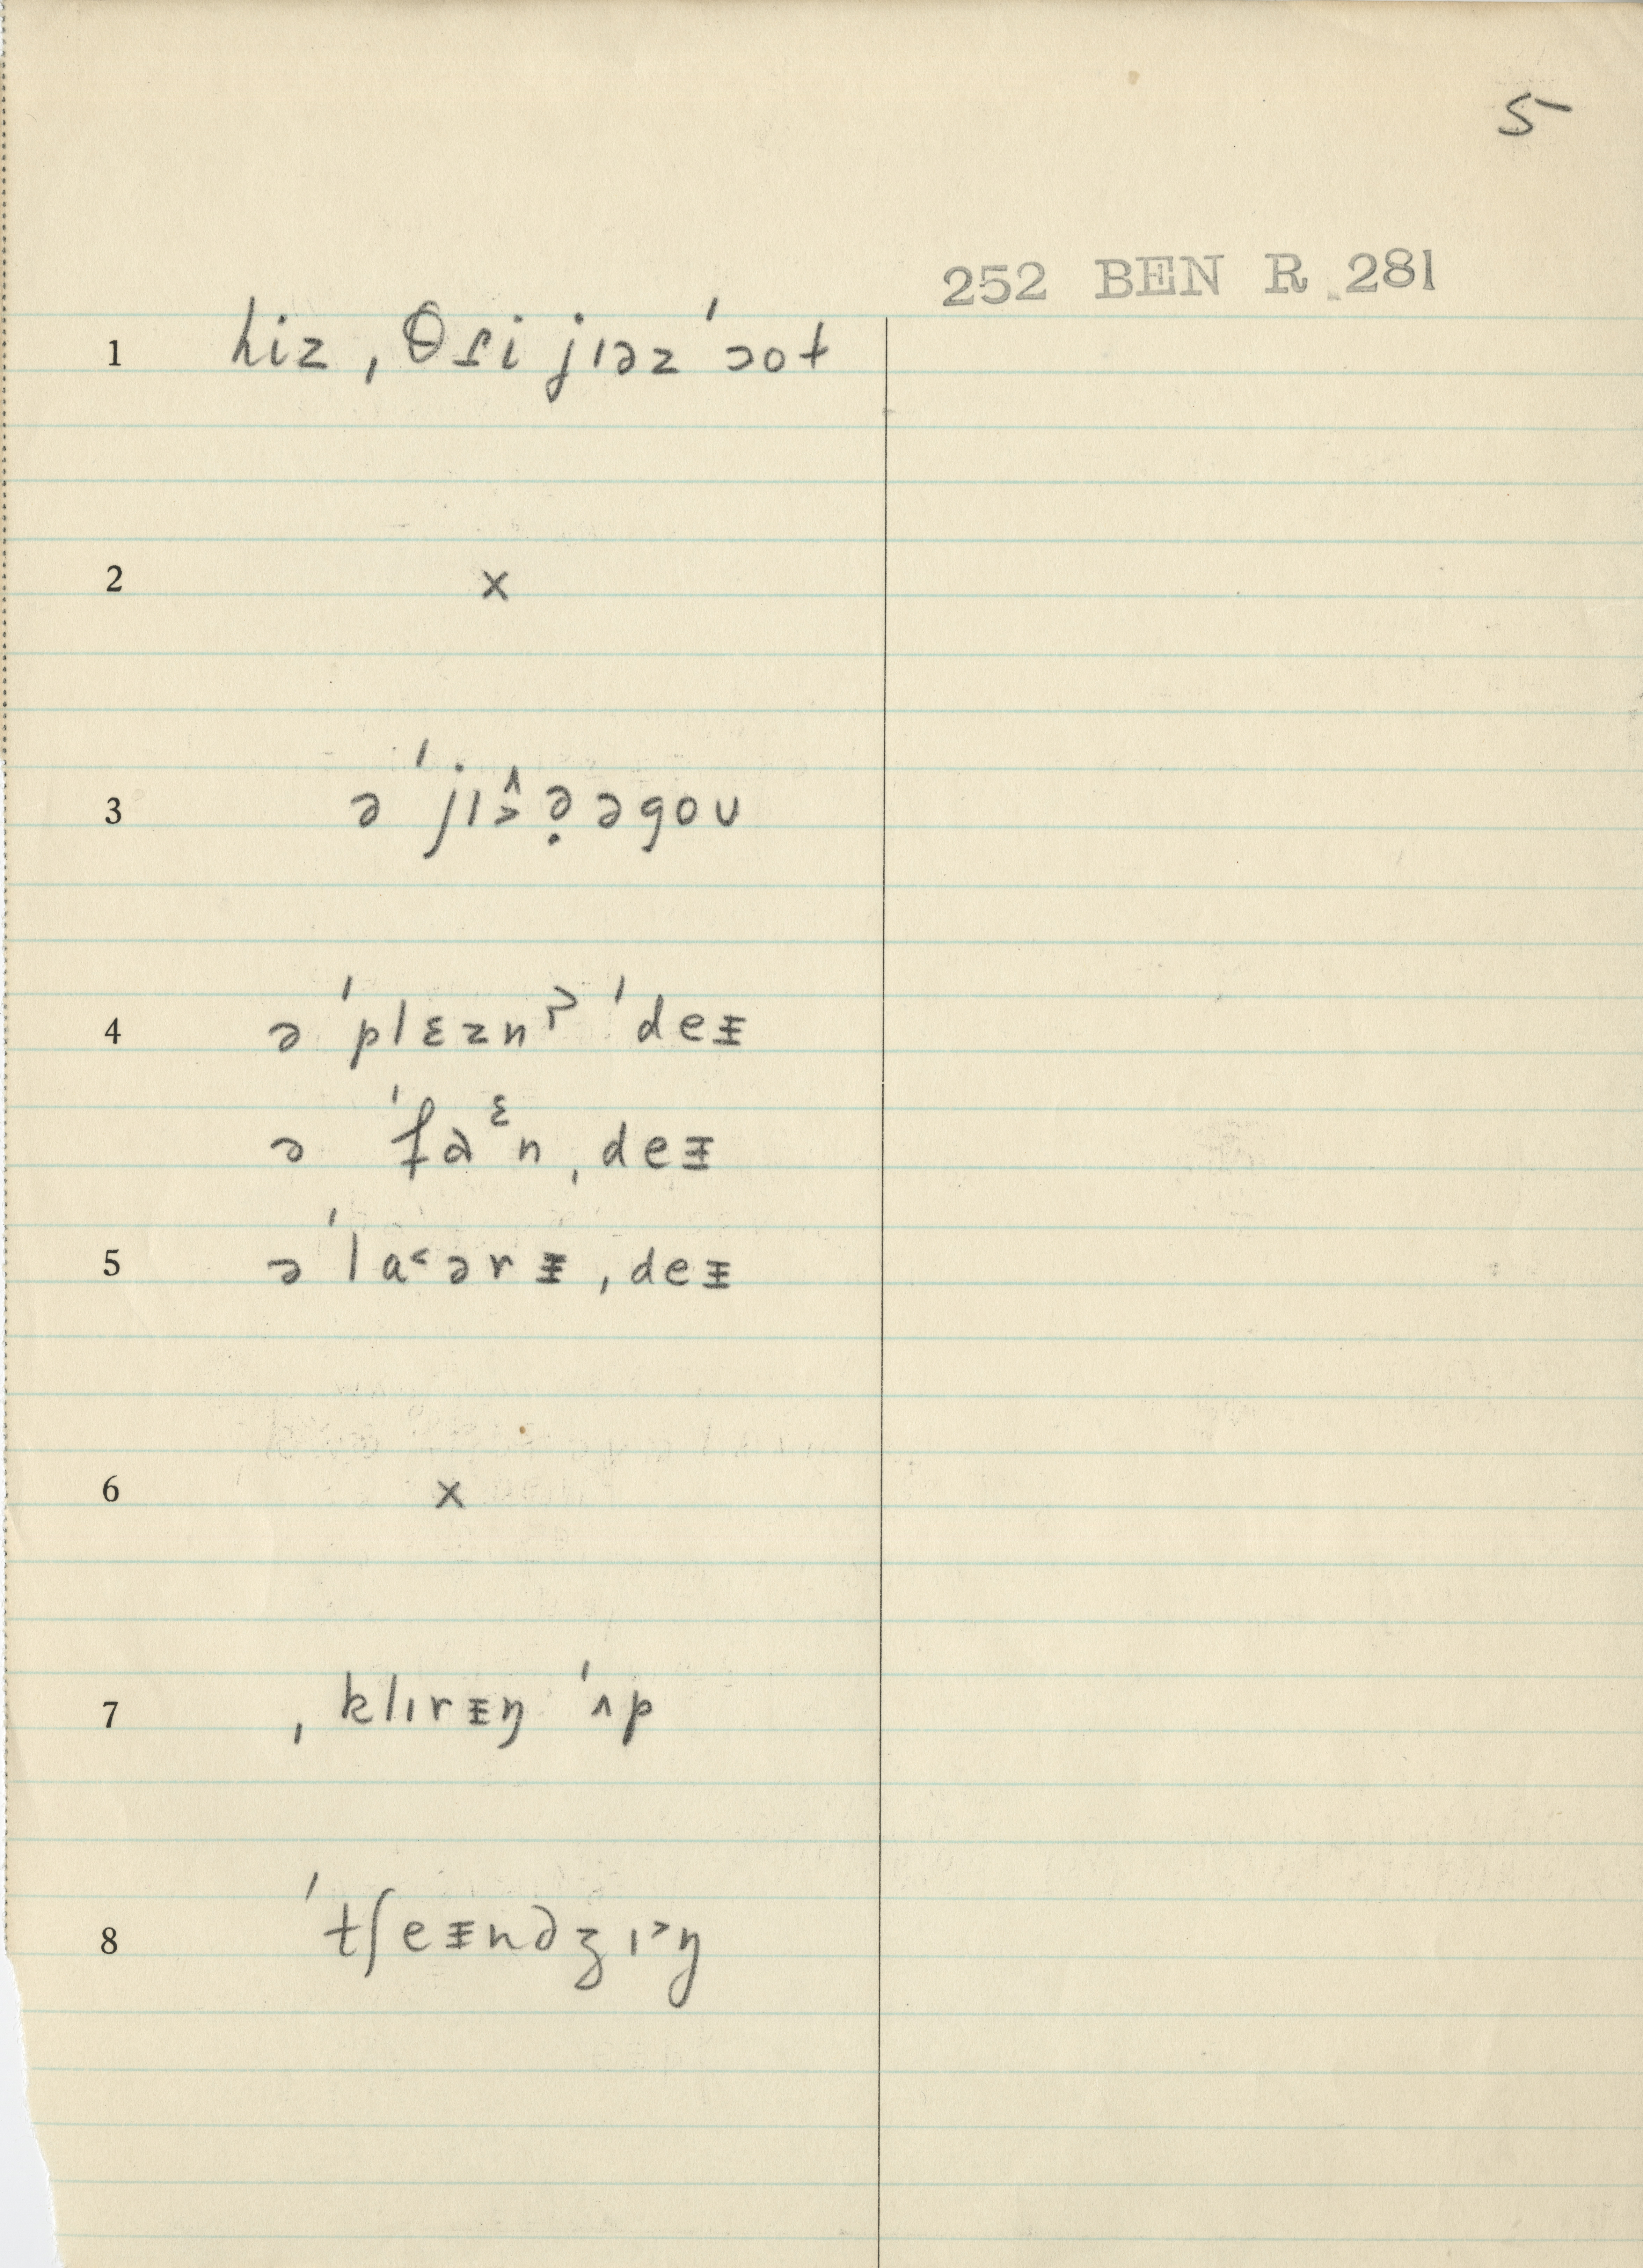 5
252 BEN R 281
1 hiz ˌθɾi jɪəz ˈɔot
2 x
3 ə ˈjɪɜ^ə̣ əgoʊ
4 ə ˈplɛznɚ ˈdeᵻ
ə ˈfaᵋn ˌdeᵻ
5 ə ˈla˂ərᵻ ˌdeᵻ
6 x
7 ˌklɪrᵻŋ ˈʌp
8 ˈtʃeᵻndʒɪ˃ŋ